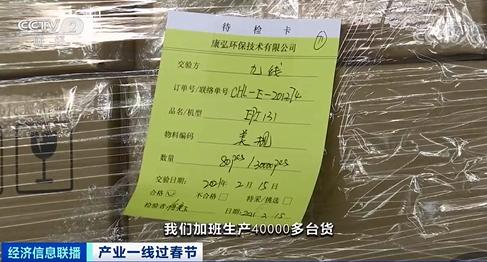 CCTV 2
待检卡
康弘环保技术有限公司
交验方 九线
订单号/联络单号 CHL-E-201274
品名/机型 EPI131
物料编码 美规
数量 80pcs/3000pcs
交验日期: 2021年2月15日
合格 不合格 特采/挑选
检验者: 日期: 2021.2.15
我们加班生产40000多台货
经济信息联播 产业一线过春节